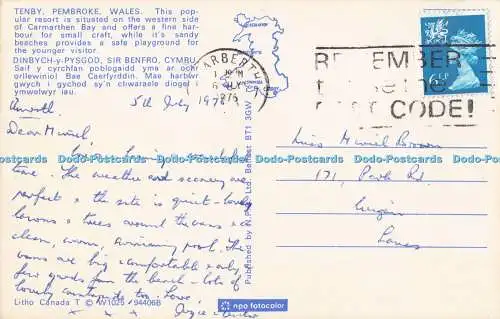 TENBY, PEMBROKE, WALES. This popu-
lar resort is situated on the western side
of Carmarthen Bay and offers a fine har-
bour for small craft, while it's sandy
beaches provides a safe playground for
the younger visitor.
DINBYCH-y-PYSGOD, SIR BENFRO, CYMRU.
Saif y cyrchfan poblogaidd yma ar ochr
orllewinol Bae Caerfyrddin. Mae harbwr
gwych i gychod sy'n chwaraele diogel i
ymwelwyr iau.
5th July 1976
Dear Muriel,
time. The weather and scenery are
perfect & the site is quiet - lovely
lawns & trees around the vans & a
clean, warm, swimming pool. The
vans are big & comfortable & only
few yards from the beach - lots of
lovely countryside too. Love,
Joyce &
Litho Canada T © W1029 / 94406B
Published by N.P.O. Ltd. Belfast BT1 3GW
npo fotocolor
NARBERTH
1976
REMEMBER
CODE!
6½P
Miss Muriel Brown
171, Park Rd
Wigan
Lancs
Dodo-Postcards